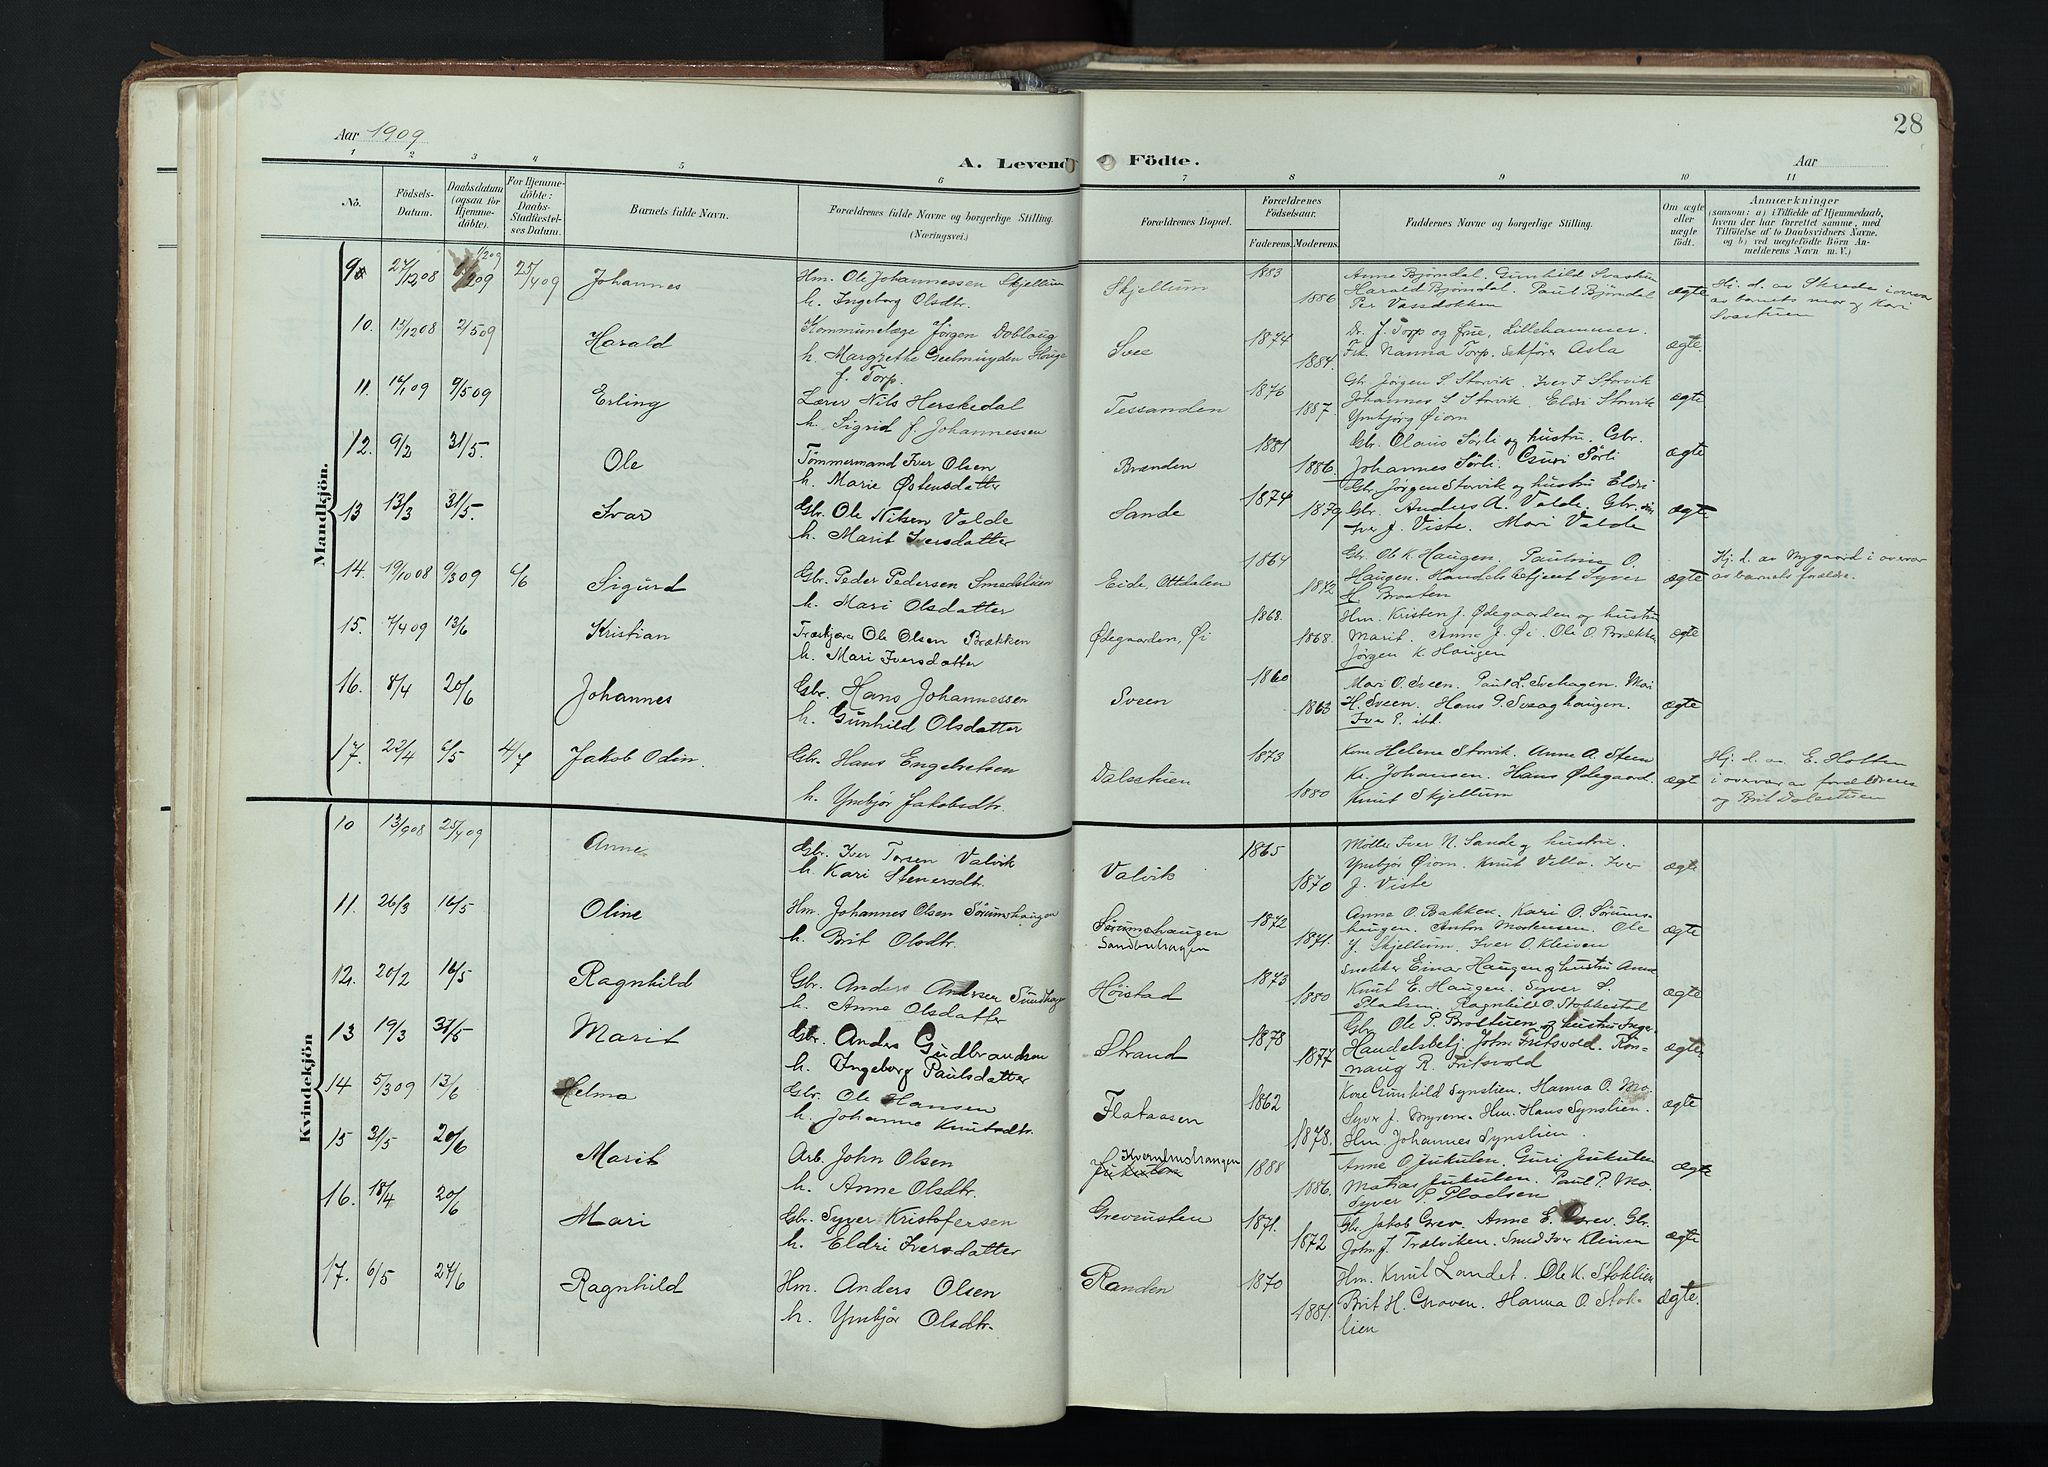 28
Aar 1909
A. Levende Födte.
Aar
1 2 3 4 5 6 7 8 9 10 11
No.
Födsels-Datum.
Daabsdatum (ogsaa for Hjemmedöbte).
For Hjemmedöbte: Daabs-Stadfæstelses Datum.
Barnets fulde Navn.
Forældrenes fulde Navne og borgerlige Stilling. (Næringsvei.)
Forældrenes Bopæl.
Forældrenes Födselsaar.
Faderens. Moderens.
Faddernes Navne og borgerlige Stilling.
Om ægte eller uægte födt.
Anmærkninger (saasom: a) i Tilfælde af Hjemmedaab, hvem der har forrettet samme, med Tilföielse af to Daabsvidners Navne, og b) ved uægtefödte Börn Anmelderens Navn m. V.)
Mandkjön.
9 27/12 08 25/4 09 Johannes
Hm. Ole Johannessen Skjellum
h. Ingeborg Olsdtr.
Skjellum 1883 1886
Anne Bjørndal. Gunhild Svastuen
Harald Bjørndal. Paul Bjørndal
Per Vassdokken
ægte
Hj. d. av
av barnets mor og Kari
Svastuen
10. 15/12 08 2/5 09 Harald
Kommunelæge Jørgen Doblaug
h. Margrethe Geelmuyden Hauge
f. Torp.
Svee 1874 1884.
Dr. J. Torp og frue, Lillehammer.
Frk. Nanna Torp. Asla
ægte.
11. 14/1 09 9/5 09 Erling
Lærer Nils Herskedal
h. Sigrid f. Johannessen
Tessanden 1876 1887.
Gbr. Jørgen S. Storvik. Iver J. Storvik
Johannes S. Storvik. Eldri Storvik
Ymbjørg Øiom
ægte
12. 9/3 31/5. Ole
Tømmermand Iver Olsen
h. Marie Østensdatter
Brænden 1881 1886.
Gbr. Olaus Sørli og hustru. Gbr.
Johannes Sørli. Guri Sørli
ægte
13 13/3 31/5. Ivar
Gbr. Ole Nilsen Valde
h. Marit Iversdatter
Sande 1874 1879
Gbr. Jørgen Storvik og hustru Eldri
Gbr. Anders A. Valde. Gbr.
Iver J. Viste. Mari Valde
ægte
14. 19/10 08 9/3 09 6/6 Sigurd
Gbr. Peder Pedersen Smedslien
h. Mari Olsdatter
Eide, Ottdalen 1864 1872
Gbr. Ole K. Haugen. Pauline O.
Haugen. Handelsbetjent Syver
H. Braaten
ægte
Hj. d. av Nygaard i overvær
av barnets forældre.
15. 7/4 09 13/6 Kristian
Træskjærer Ole Olsen Brækken
h. Mari Iversdatter
Ødegaarden, Øi 1868. 1868.
Hm. Kristen J. Ødegaarden og hustru
Marit. Anne J. Øi. Ole O. Brækken
Jørgen K. Haugen
ægte
16. 8/4 20/6 Johannes
Gbr. Hans Johannessen
h. Gunhild Olsdatter
Sveen 1860 1863
Mari O. Sveen. Paul L. Svehagen. Mari
H. Sveen. Hans P.
Iver P. ibd.
ægte
17. 23/4 6/5 4/7 Jakob Odin.
Gbr. Hans Engebretsen
h. Ymbjør Jakobsdtr.
Dalastuen 1873 1880
Kone Helene Storvik. Anne A. Steen
Kr. Johansen. Hans Ødegaard.
Knut Skjellum
ægte
Hj. d. av E. Holten
i overvær av forældrene
og Brit Dalastuen
Kvindekjön
10 13/9 08 25/4 09 Anne
Gbr. Iver Torsen Valvik
h. Kari Stenersdtr.
Valvik 1865 1870
Møller Iver N. Sande og hustru.
Ymbjør Øiom. Knut Villa. Iver
J. Viste
ægte
11. 26/3 16/5 Oline
Hm. Johannes Olsen Sørumshaugen
h. Brit Olsdtr.
Sørumshaugen
Sandbuhagen 1872 1871.
Anne O. Bakken. Kari O. Sørums-
haugen. Anton Mortensen. Ole
J. Skjellum. Iver O. Kleiven
ægte
12. 20/2 16/5 Ragnhild
Gbr. Anders Andersen
h. Anne Olsdatter
Høistad 1873 1880
Snekker Einar Haugen og hustru Anne
Knut E. Haugen. Syver S.
Pladsen. Ragnhild O. Stokkestad
ægte
13 19/3 31/5 Marit
Gbr. Anders Gudbrandsen
h. Ingeborg Paulsdatter
Strand 1878 1877
Gbr. Ole P. Brostuen og hustru Inge.
Handelsbetj. John Fritsvold. Røn-
naug R. Fritsvold
ægte
14 5/3 09 13/6 Helma
Gbr. Ole Hansen
h. Johanne Knutsdtr.
Flataasen 1862 1878.
Kone Gunhild Synslien. Hanna O. Mo.
Syver J. Myrene. Hm. Hans Synslien.
Hm. Johannes Synslien.
ægte
15 31/5 20/6 Marit
Arb. John Olsen
h. Anne Olsdtr.
Kvernhushaugen
Jukulen 1888 1886.
Anne O. Jukulen. Guri Jukulen
Mathias Jukulen. Paul P. Mo.
Syver P. Pladsen
ægte
16. 18/4 20/6 Mari
Gbr. Syver Kristofersen
h. Eldri Iversdatter
Grevrusten 1871. 1872
Gbr. Jakob Grev. Anne E. Grev. Gbr.
John J. Trælviken. Smed Iver Kleiven
ægte
17. 6/5 27/6 Ragnhild
Hm. Anders Olsen
h. Ymbjør Olsdtr.
Randen 1870 1881.
Hm. Knut Landet. Ole K. Stoklien
Brit H. Groven. Hanna O. Stok-
lien
ægte.